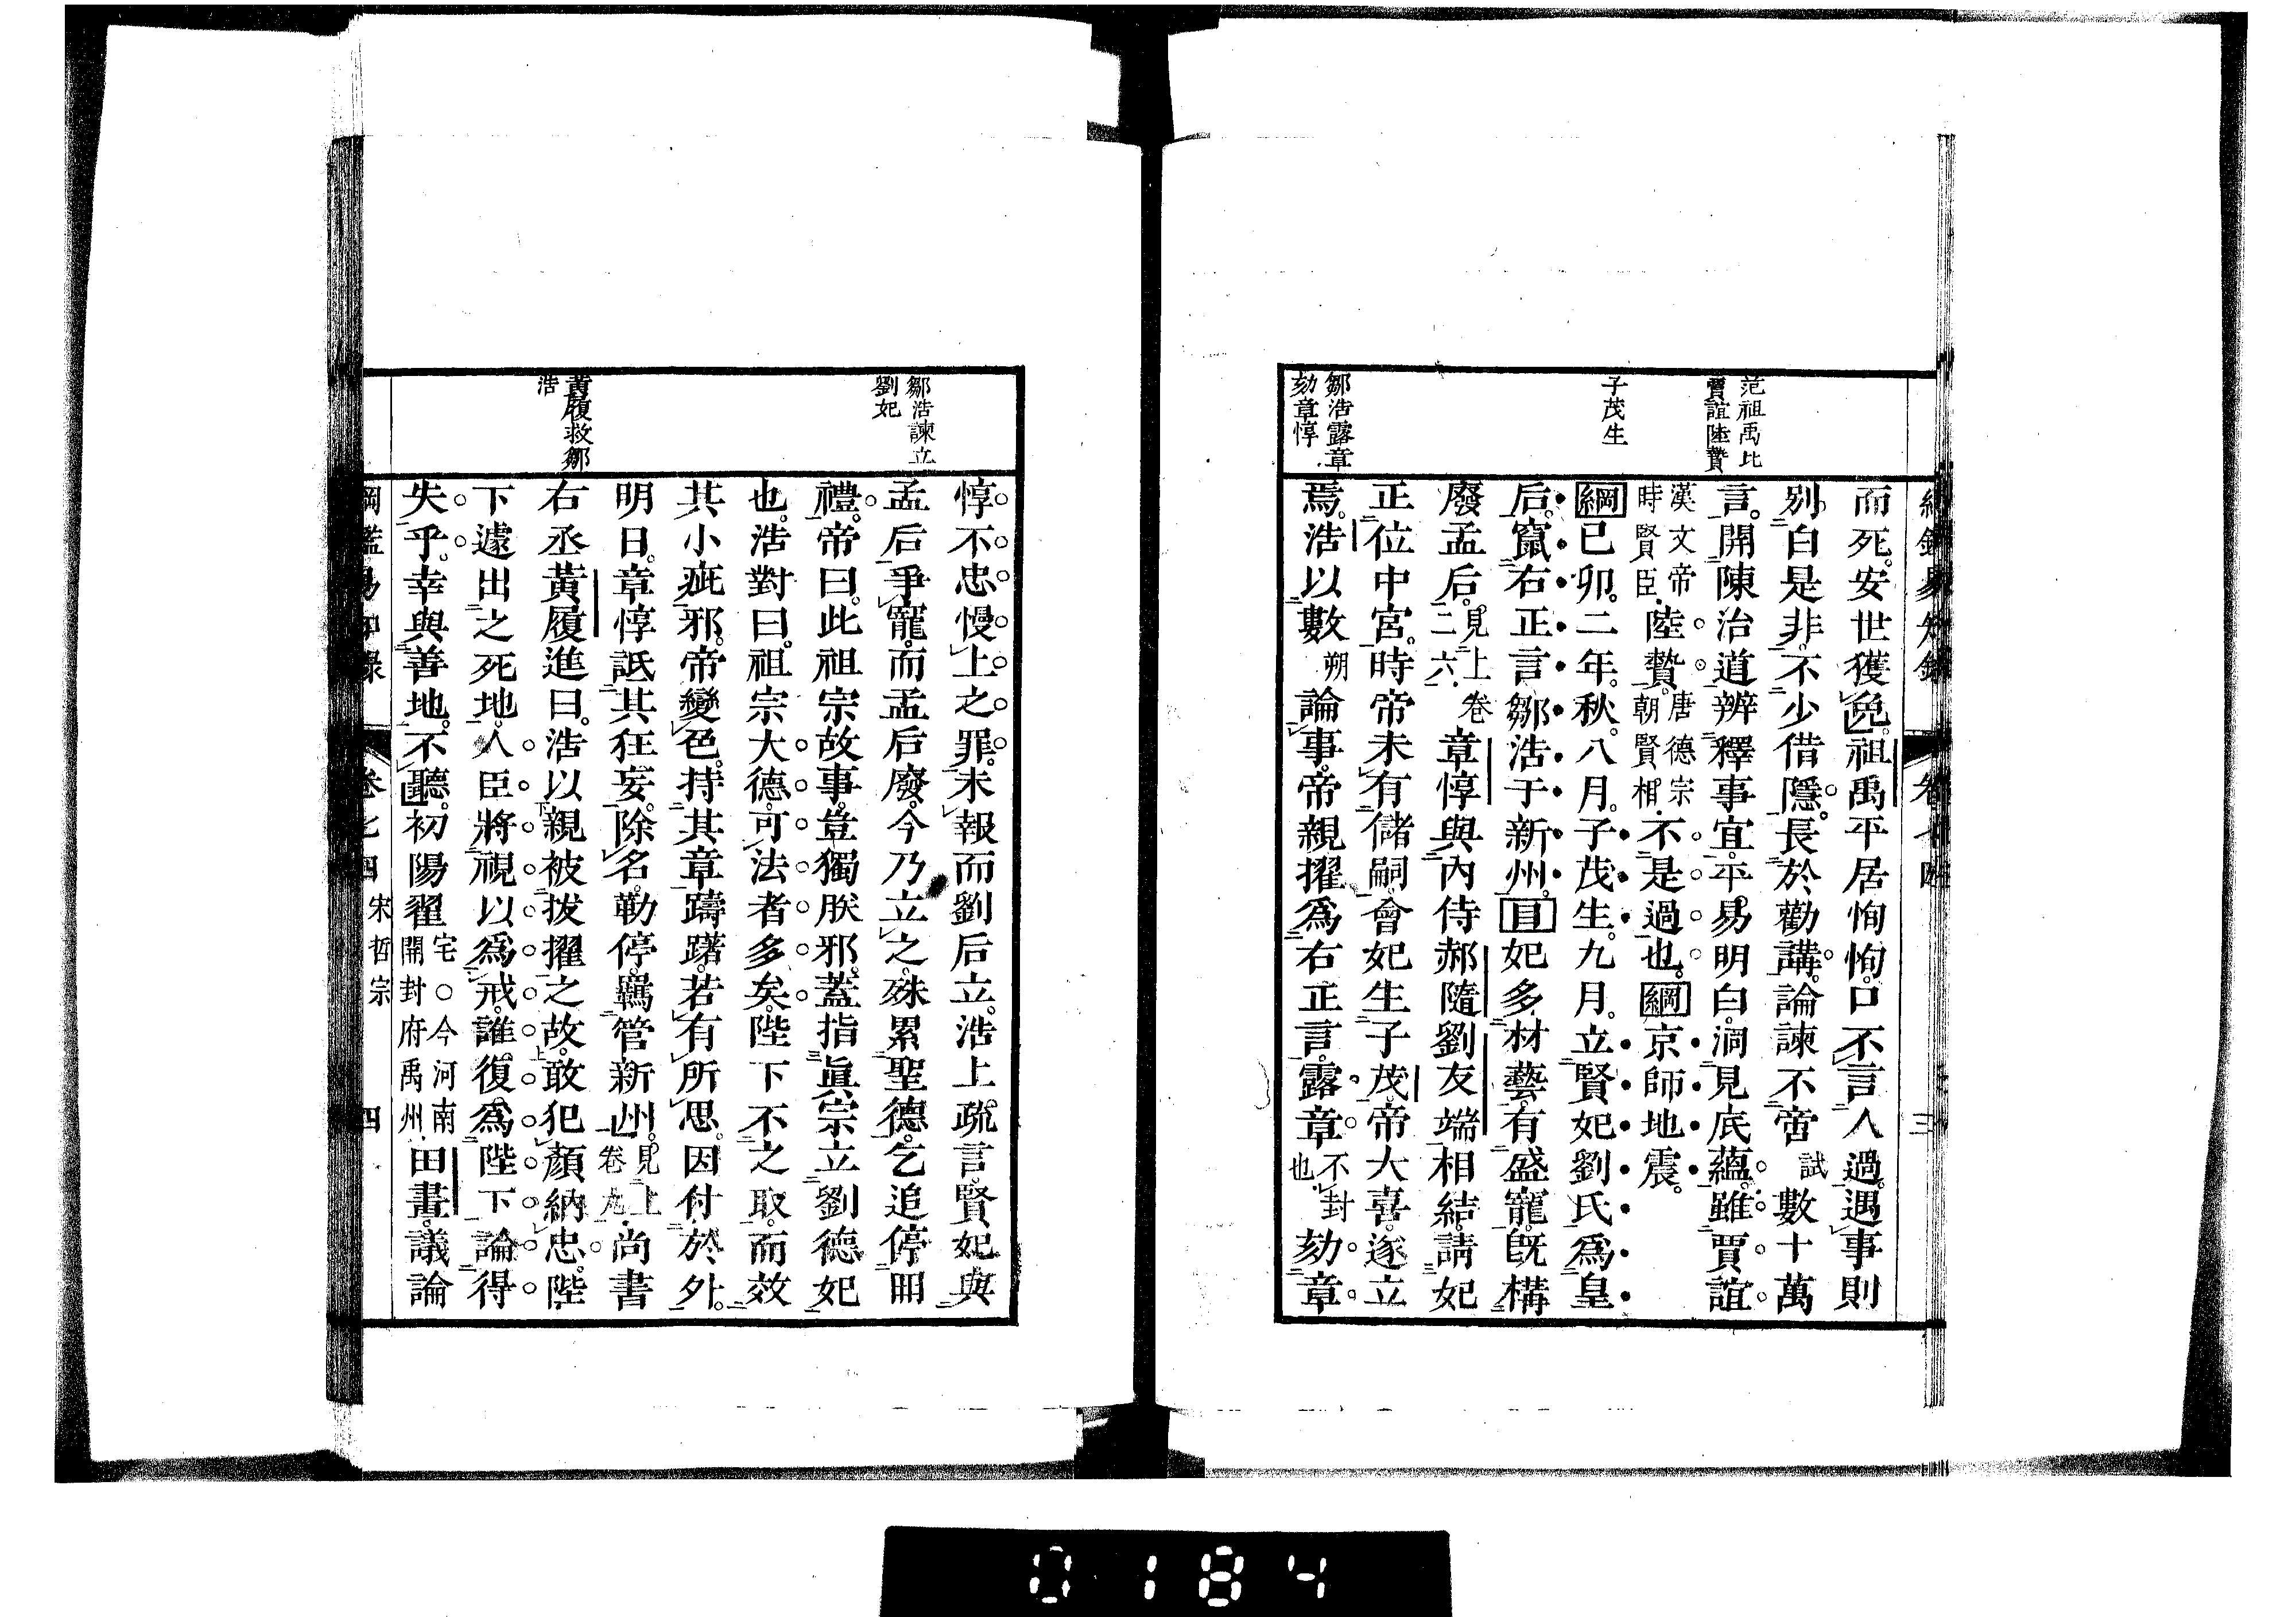 綱鑑易知錄 卷七四 三
范祖禹比
賈誼陸贄
子茂生
鄒浩露章
劾章惇
而死。安世獲免。祖禹平居恂恂。口不言人過。遇事則
別白是非。不少借隱。長於勸講。論諫不啻試數十萬
言。開陳治道。辨釋事宜。平易明白。洞見底蘊。雖賈誼
漢文帝時賢臣。陸贄。唐德宗朝賢相。不是過也。綱京師地震。
綱己卯。二年。秋。八月。子茂生。九月。立賢妃劉氏爲皇
后。竄右正言鄒浩于新州。目妃多材藝。有盛寵。旣構
廢孟后。見上卷二六章惇與內侍郝隨劉友端相結。請妃
正位中宮。時帝未有儲嗣。會妃生子茂。帝大喜。遂立
焉。浩以數朔論事。帝親擢爲右正言。露章不封也。劾章
鄒浩諫立
劉妃
黃履救鄒
浩
惇不忠慢上之罪。未報而劉后立。浩上疏言。賢妃與
孟后爭寵。而孟后廢。今乃立之。殊累聖德。乞追停冊
禮。帝曰。此祖宗故事。豈獨朕邪。蓋指眞宗立劉德妃
也。浩對曰。祖宗大德。可法者多矣。陛下不之取。而效
其小疵邪。帝變色。持其章躊躇。若有所思。因付於外。
明日。章惇詆其狂妄。除名勒停。羈管新州。見上卷九。尚書
右丞黃履進曰。浩以親被拔擢之故。敢犯顏納忠。陛
下遽出之死地。人臣將視以爲戒。誰復爲陛下論得
失乎。幸與善地。不聽。初陽翟宅○今河南開封府禹州。田晝。議論
綱鑑易知錄 卷七四 宋哲宗 四
0184